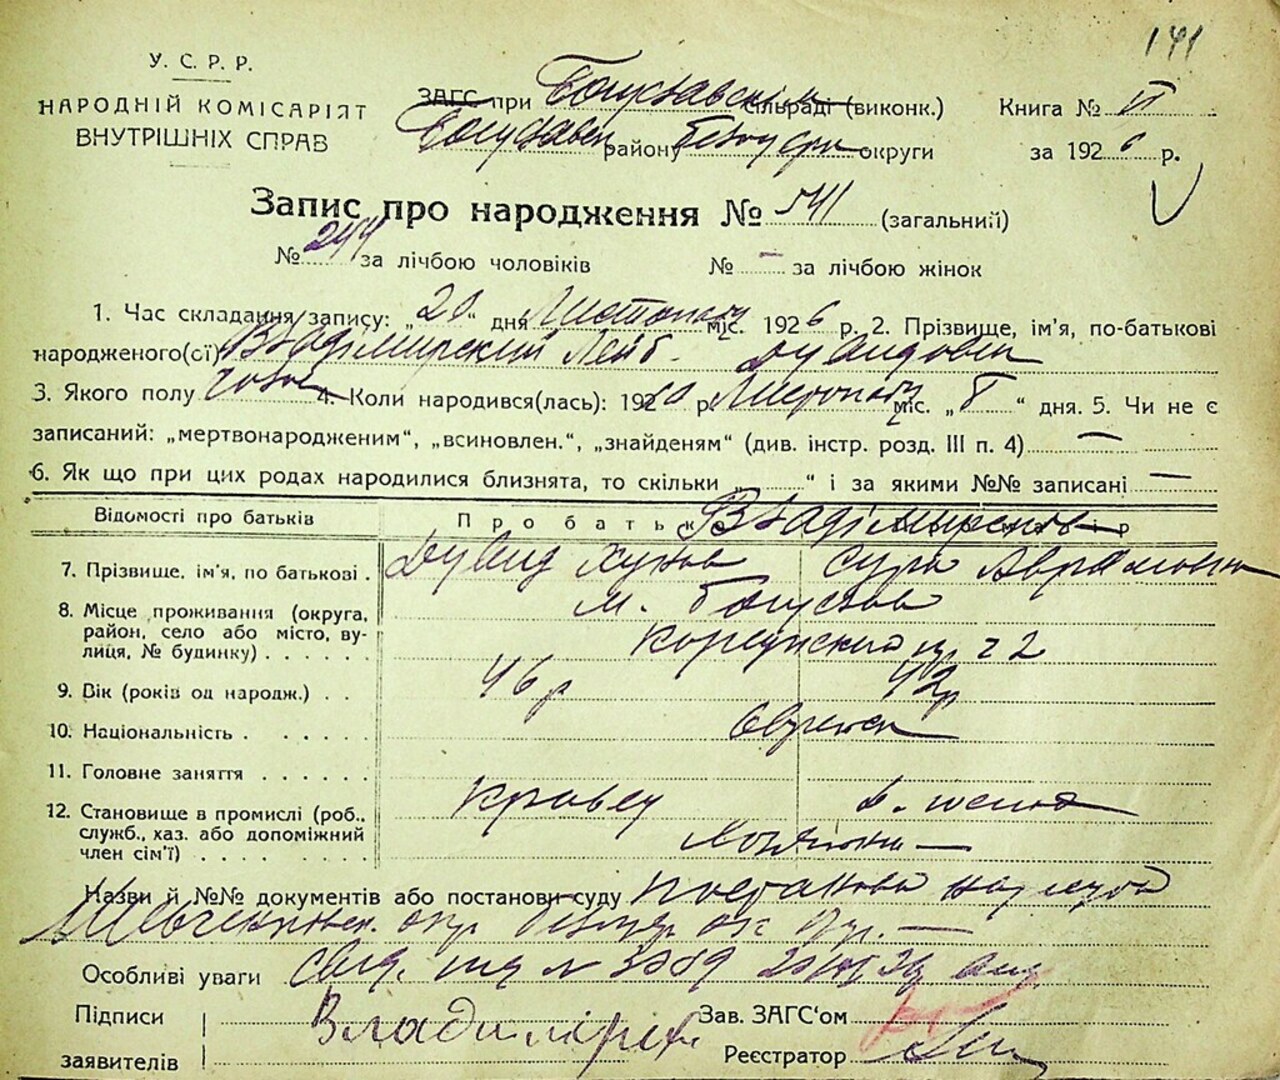 141
У. С. Р. Р.
НАРОДНІЙ КОМІСАРІЯТ
ВНУТРІШНІХ СПРАВ
ЗАГС при Богуславськім сільраді (виконк.)
Книга № VI
Богуславськ району округи
за 1926 р.
Запис про народження № 541 (загальний)
№ 244 за лічбою чоловіків № — за лічбою жінок
1. Час складання запису: „20“ дня Листопада міс. 1926 р. 2. Прізвище, ім'я, по-батькові
народженого(ої) Владімирский Лейб Дувидович
3. Якого полу чолов 4. Коли народився(лась): 1920 р. Листопада міс. „8“ дня. 5. Чи не є
записаний: „мертвонародженим“, „всиновлен.“, „знайденям“ (див. інстр. розд. III п. 4) —
6. Як що при цих родах народилися близнята, то скільки „ “ і за якими №№ записані —
Відомості про батьків
Про батька Владімирские
7. Прізвище, ім'я, по батькові . Дувид Сура Аврамовна
8. Місце проживання (округа, м. Богуслав
район, село або місто, ву-
лиця, № будинку) . . . . . 2
9. Вік (років од народж.) . . 46 р 42 р
10. Національність . . . . . . Евреи
11. Головне заняття . . . . . .
12. Становище в промислі (роб., Кравец д. жена
служб., хаз. або допоміжний
член сім'ї) . . . . . .
Назви й №№ документів або постанови суду Постанова нар суда
Шевченковск. окр.
Особливі уваги № 3089
Підписи
заявителів
Зав. ЗАГС'ом
Реєстратор